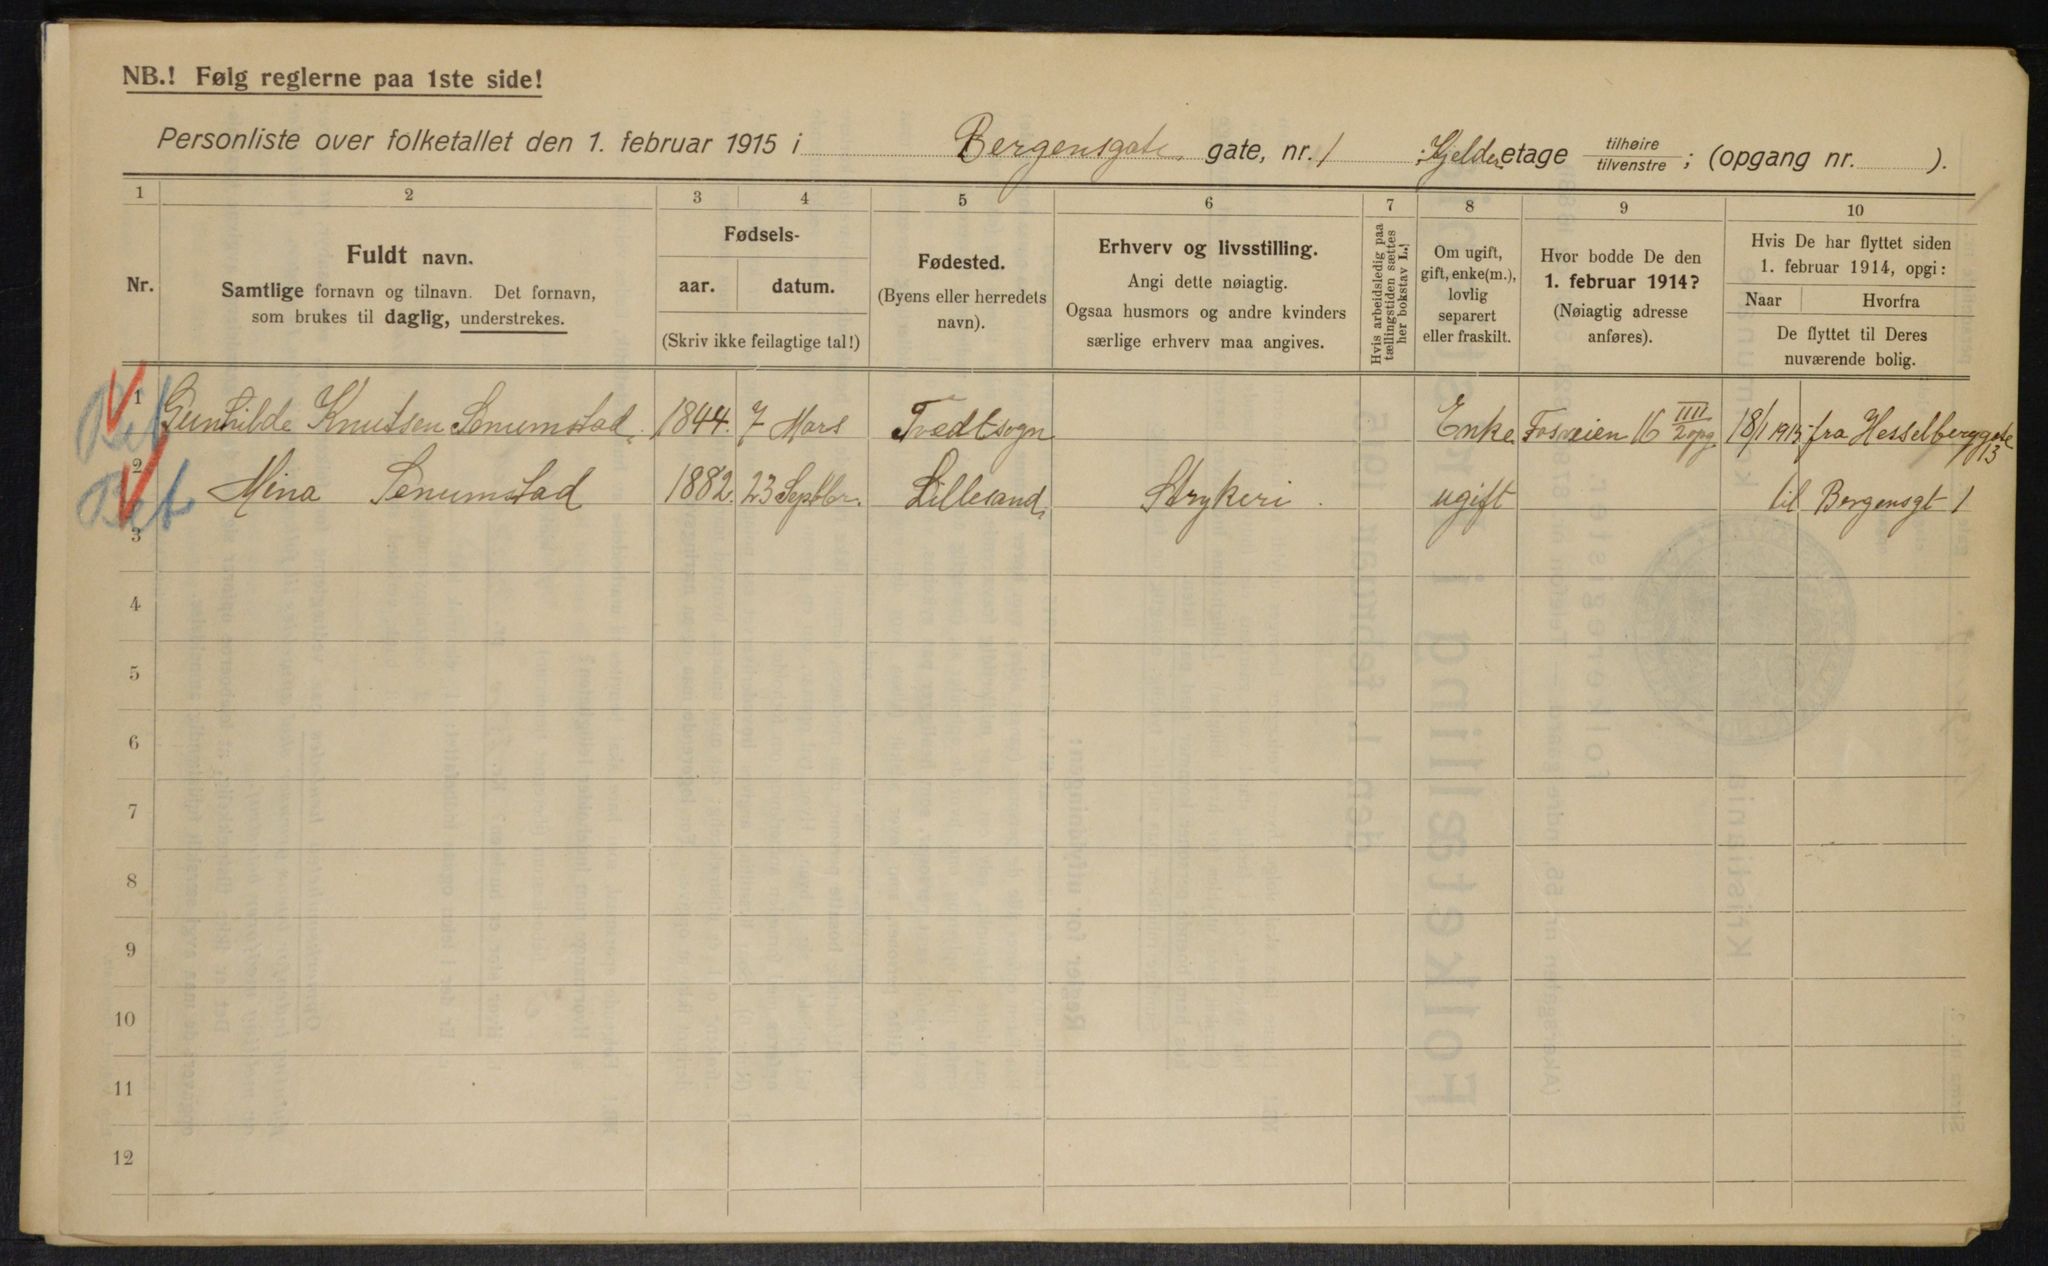 NB.! Følg reglerne paa 1ste side!
Personliste over folketallet den 1. februar 1915 i Bergensgate gate, nr. 1 ; Kjelder etage tilhøire / tilvenstre ; (opgang nr. ).
1 2 3 4 5 6 7 8 9 10
Nr.
Fuldt navn.
Samtlige fornavn og tilnavn. Det fornavn,
som brukes til daglig, understrekes.
Fødsels-
aar. datum.
(Skriv ikke feilagtige tal!)
Fødested.
(Byens eller herredets
navn).
Erhverv og livsstilling.
Angi dette nøiagtig.
Ogsaa husmors og andre kvinders
særlige erhverv maa angives.
Hvis arbeidsledig paa
tællingstiden sættes
her bokstav L.!
Om ugift,
gift, enke(m.),
lovlig
separert
eller fraskilt.
Hvor bodde De den
1. februar 1914?
(Nøiagtig adresse
anføres).
Hvis De har flyttet siden
1. februar 1914, opgi:
Naar Hvorfra
De flyttet til Deres
nuværende bolig.
1 Gunhilde Knutsen Senumstad. 1844. 7 Mars Tvedtsogn Enke Fosveien 16 IIII / 2 opg. 18/1 1915 fra Hesselberggate 13
2 Mina Senumstad 1882. 23 Septbr. Lillesand. Strykeri. ugift til Bergensgt 1
Bet
Bet
3
4
5
6
7
8
9
10
11
12